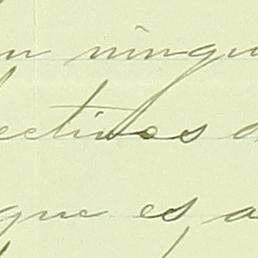 n ningu
ectivos d
que es a